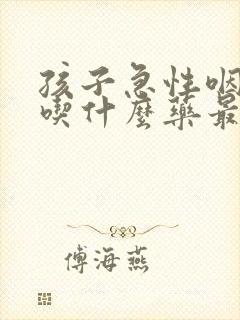 孩子急性咽
喫什麼藥最
傅海燕